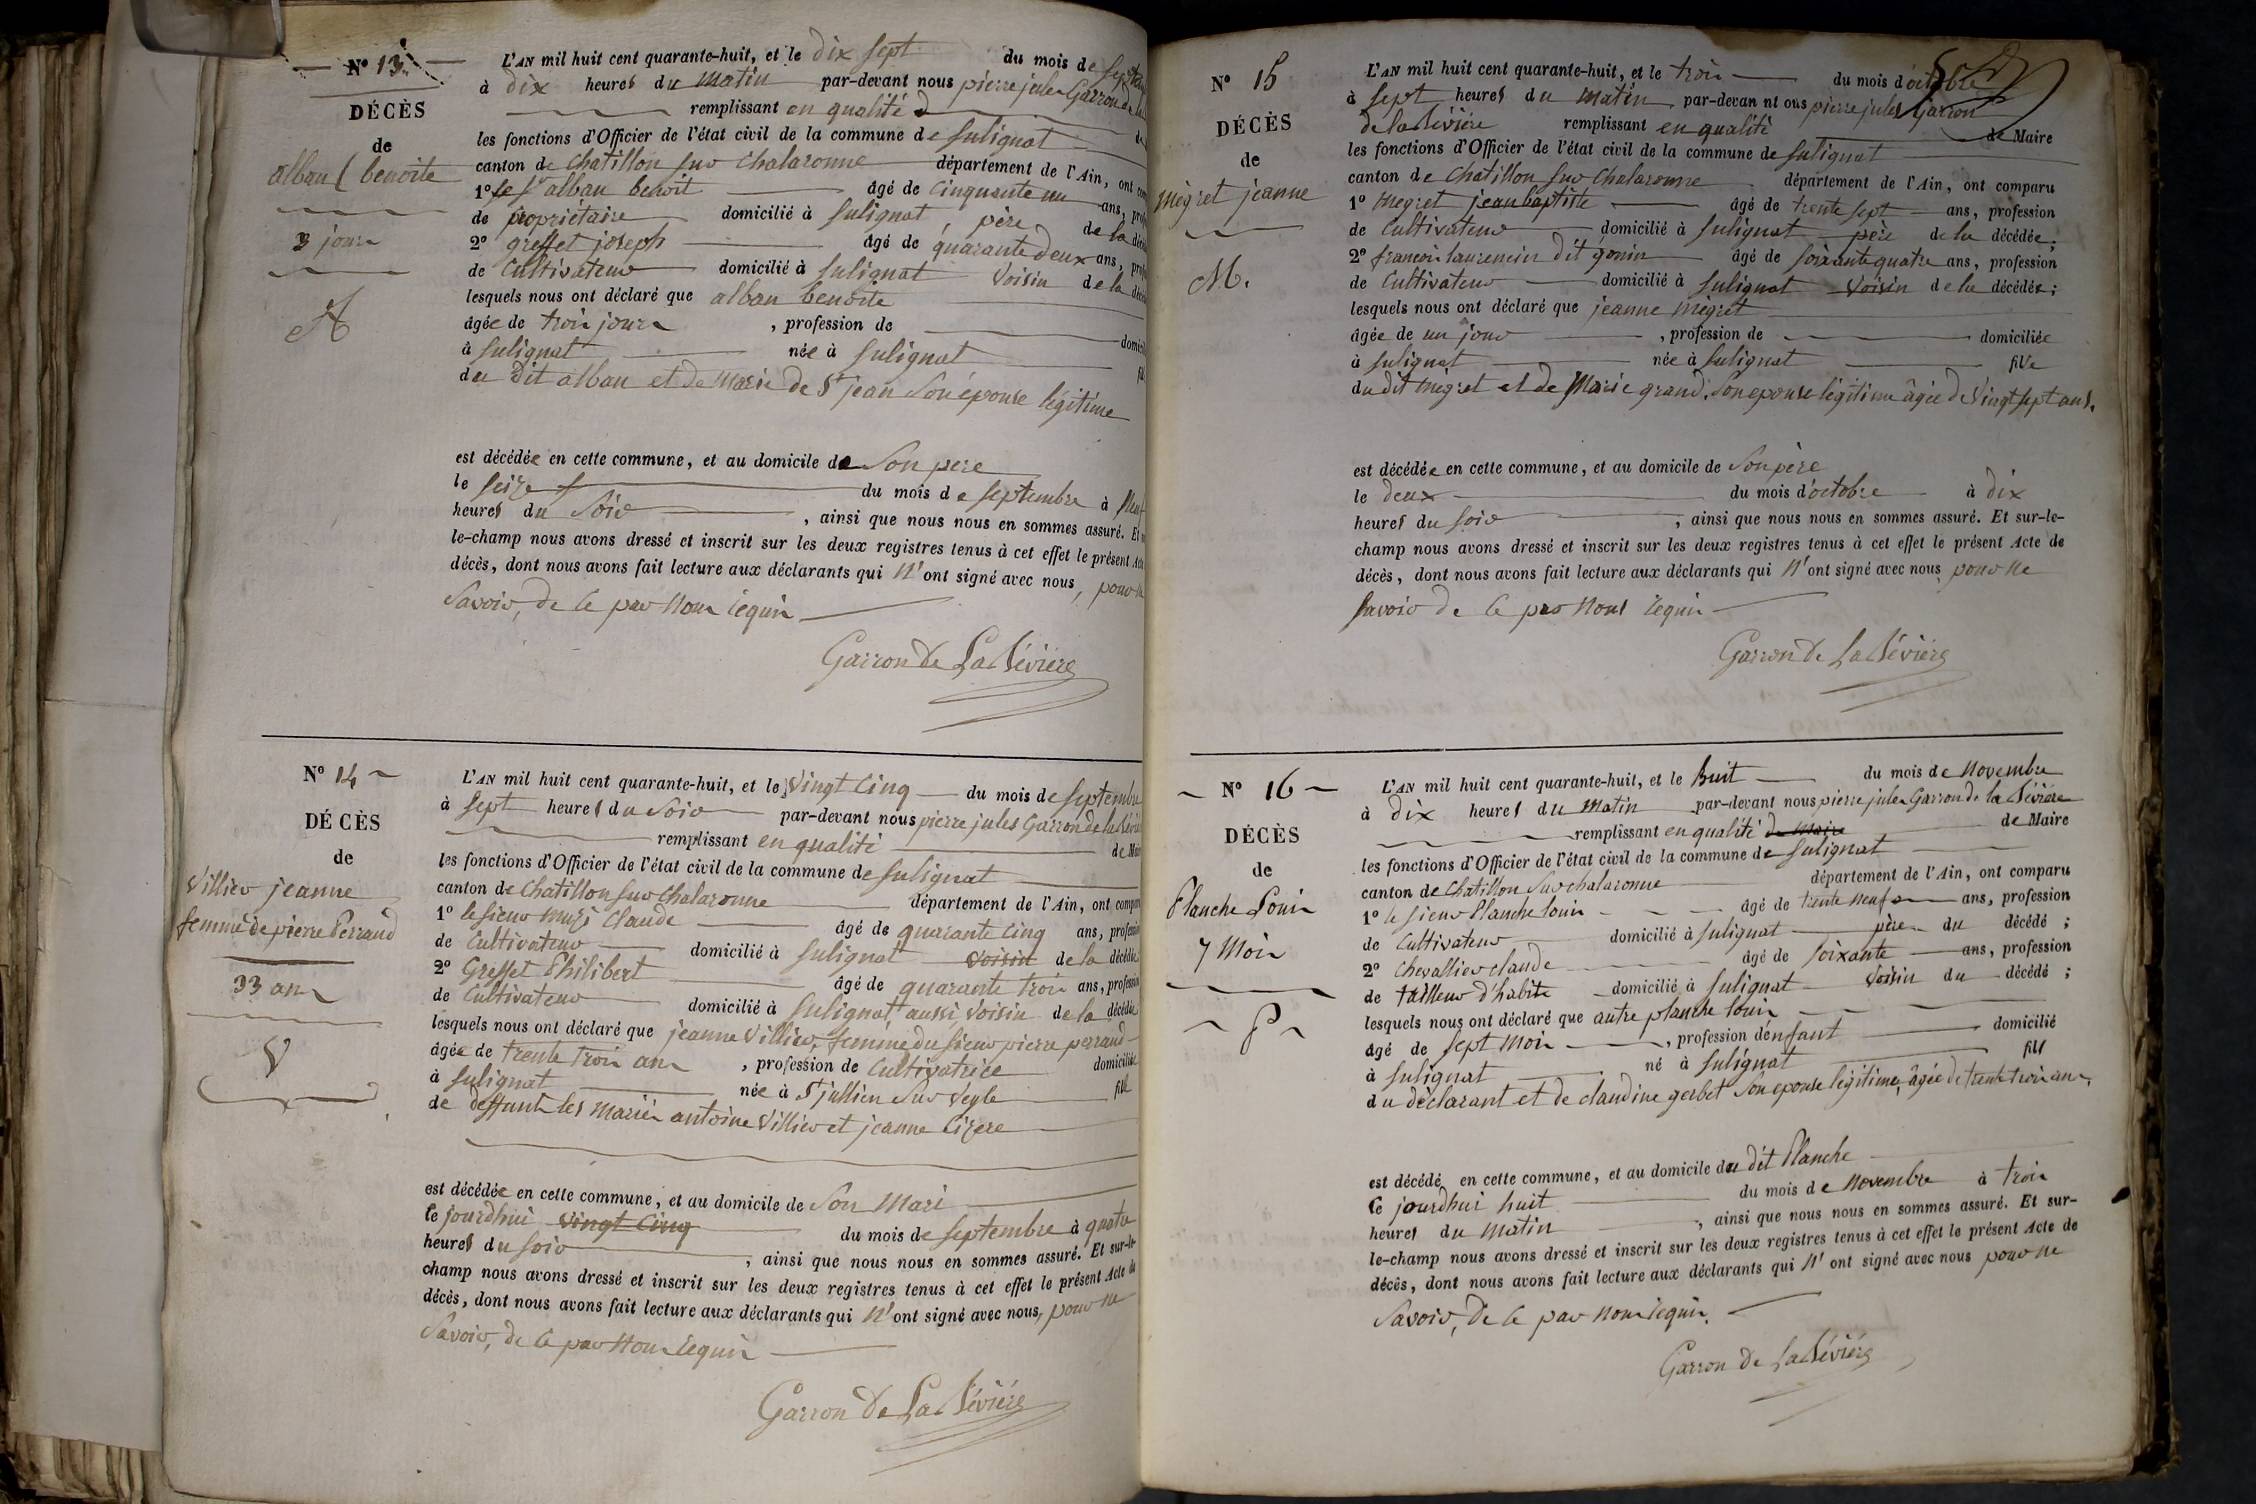 N° 13
DÉCÈS
de
alban benoite
3 jours
A
L'AN mil huit cent quarante-huit, et le dix sept du mois de septembre
à dix heures du matin par-devant nous pierre jules Garron de la
remplissant en qualité d
les fonctions d'Officier de l'état civil de la commune de Sulignat de
canton de Chatillon sur Chalaronne département de l'Ain, ont
1° le Sr alban benoit âgé de cinquante un ans,
de propriétaire domicilié à Sulignat père de la
2° greffet joseph âgé de quarante deux ans,
de Cultivateur domicilié à Sulignat Voisin de la
lesquels nous ont déclaré que alban benoite
âgée de trois jours , profession de
à Sulignat née à Sulignat
du dit alban et de Marie de St jean Son épouse légitime
est décédée en cette commune, et au domicile de Son père
le Seize du mois de Septembre à Neuf
heures du Soir , ainsi que nous nous en sommes assuré. Et
le-champ nous avons dressé et inscrit sur les deux registres tenus à cet effet le présent Acte
décès, dont nous avons fait lecture aux déclarants qui n'ont signé avec nous, pour ne
Savoir, de ce par Nous requis
Garron De La Bévière
N° 14
DÉCÈS
de
Villier jeanne
femme de pierre Perraud
33 ans
V
L'AN mil huit cent quarante-huit, et le Vingt Cinq du mois de Septembre
à Sept heures du Soir par-devant nous pierre jules Garron de la Bévière
remplissant en qualité de Maire
les fonctions d'Officier de l'état civil de la commune de Sulignat
canton de Chatillon sur Chalaronne département de l'Ain, ont comparu
1° le sieur Claude âgé de quarante Cinq ans, profession
de Cultivateur domicilié à Sulignat Voisin de la décédée
2° Greffet Philibert âgé de quarante trois ans, profession
de Cultivateur domicilié à Sulignat aussi Voisin de la décédée
lesquels nous ont déclaré que jeanne Villier, femme du Sieur pierre perraud
âgée de trente trois ans , profession de Cultivatrice domiciliée
à Sulignat née à St jullien Sur Veyle fille
de deffunts les mariés antoine Villier et jeanne Cizere
est décédée en cette commune, et au domicile de Son Mari
le jourdhui vingt Cinq du mois de Septembre à quatre
heures du Soir , ainsi que nous nous en sommes assuré. Et sur-le-
champ nous avons dressé et inscrit sur les deux registres tenus à cet effet le présent Acte de
décès, dont nous avons fait lecture aux déclarants qui n'ont signé avec nous, pour ne
Savoir, de ce par Nous requis
Garron De La Bévière
N° 15
DÉCÈS
de
mégret jeanne
M.
L'AN mil huit cent quarante-huit, et le trois du mois d'octobre
à Sept heures du matin par-devan nt ous pierre jules Garron
de la Bévière remplissant en qualité de Maire
les fonctions d'Officier de l'état civil de la commune de Sulignat
canton de Chatillon Sur Chalaronne département de l'Ain, ont comparu
1° mégret jean baptiste âgé de trente Sept ans, profession
de Cultivateur domicilié à Sulignat père de la décédée;
2° francois laurencin dit gonin âgé de Soixante quatre ans, profession
de Cultivateur domicilié à Sulignat Voisin de la décédée;
lesquels nous ont déclaré que jeanne mégret
âgée de un jour , profession de domiciliée
à Sulignat née à Sulignat fille
du dit mégret et de Marie grand, Son épouse légitime âgée de Vingt Sept ans.
est décédée en cette commune, et au domicile de Son père
le deux du mois d'octobre à dix
heures du soir , ainsi que nous nous en sommes assuré. Et sur-le-
champ nous avons dressé et inscrit sur les deux registres tenus à cet effet le présent Acte de
décès, dont nous avons fait lecture aux déclarants qui n'ont signé avec nous pour ne
Savoir de ce par Nous requis
Garron De La Bévière
N° 16
DÉCÈS
de
Planche Louis
7 Mois
P
L'AN mil huit cent quarante-huit, et le huit du mois de Novembre
à dix heures du matin par-devant nous pierre jules Garron de la Bévière
remplissant en qualité de Maire de Maire
les fonctions d'Officier de l'état civil de la commune de Sulignat
canton de Chatillon Sur chalaronne département de l'Ain, ont comparu
1° le Sieur Planche Louis âgé de trente neuf ans, profession
de Cultivateur domicilié à Sulignat père du décédé;
2° Chevallier claude âgé de Soixante ans, profession
de tailleur d'habits domicilié à Sulignat Voisin du décédé;
lesquels nous ont déclaré que autre planche louis
âgé de Sept mois , profession d'enfant domicilié
à Sulignat né à Sulignat fils
du déclarant et de claudine gerbet Son épouse légitime, âgée de trente trois ans,
est décédé en cette commune, et au domicile du dit Planche
le jourdhui huit du mois de Novembre à trois
heures du matin , ainsi que nous nous en sommes assuré. Et sur-
le-champ nous avons dressé et inscrit sur les deux registres tenus à cet effet le présent Acte de
décès, dont nous avons fait lecture aux déclarants qui n'ont signé avec nous pour ne
Savoir, de ce par nous requis.
Garron De La Bévière